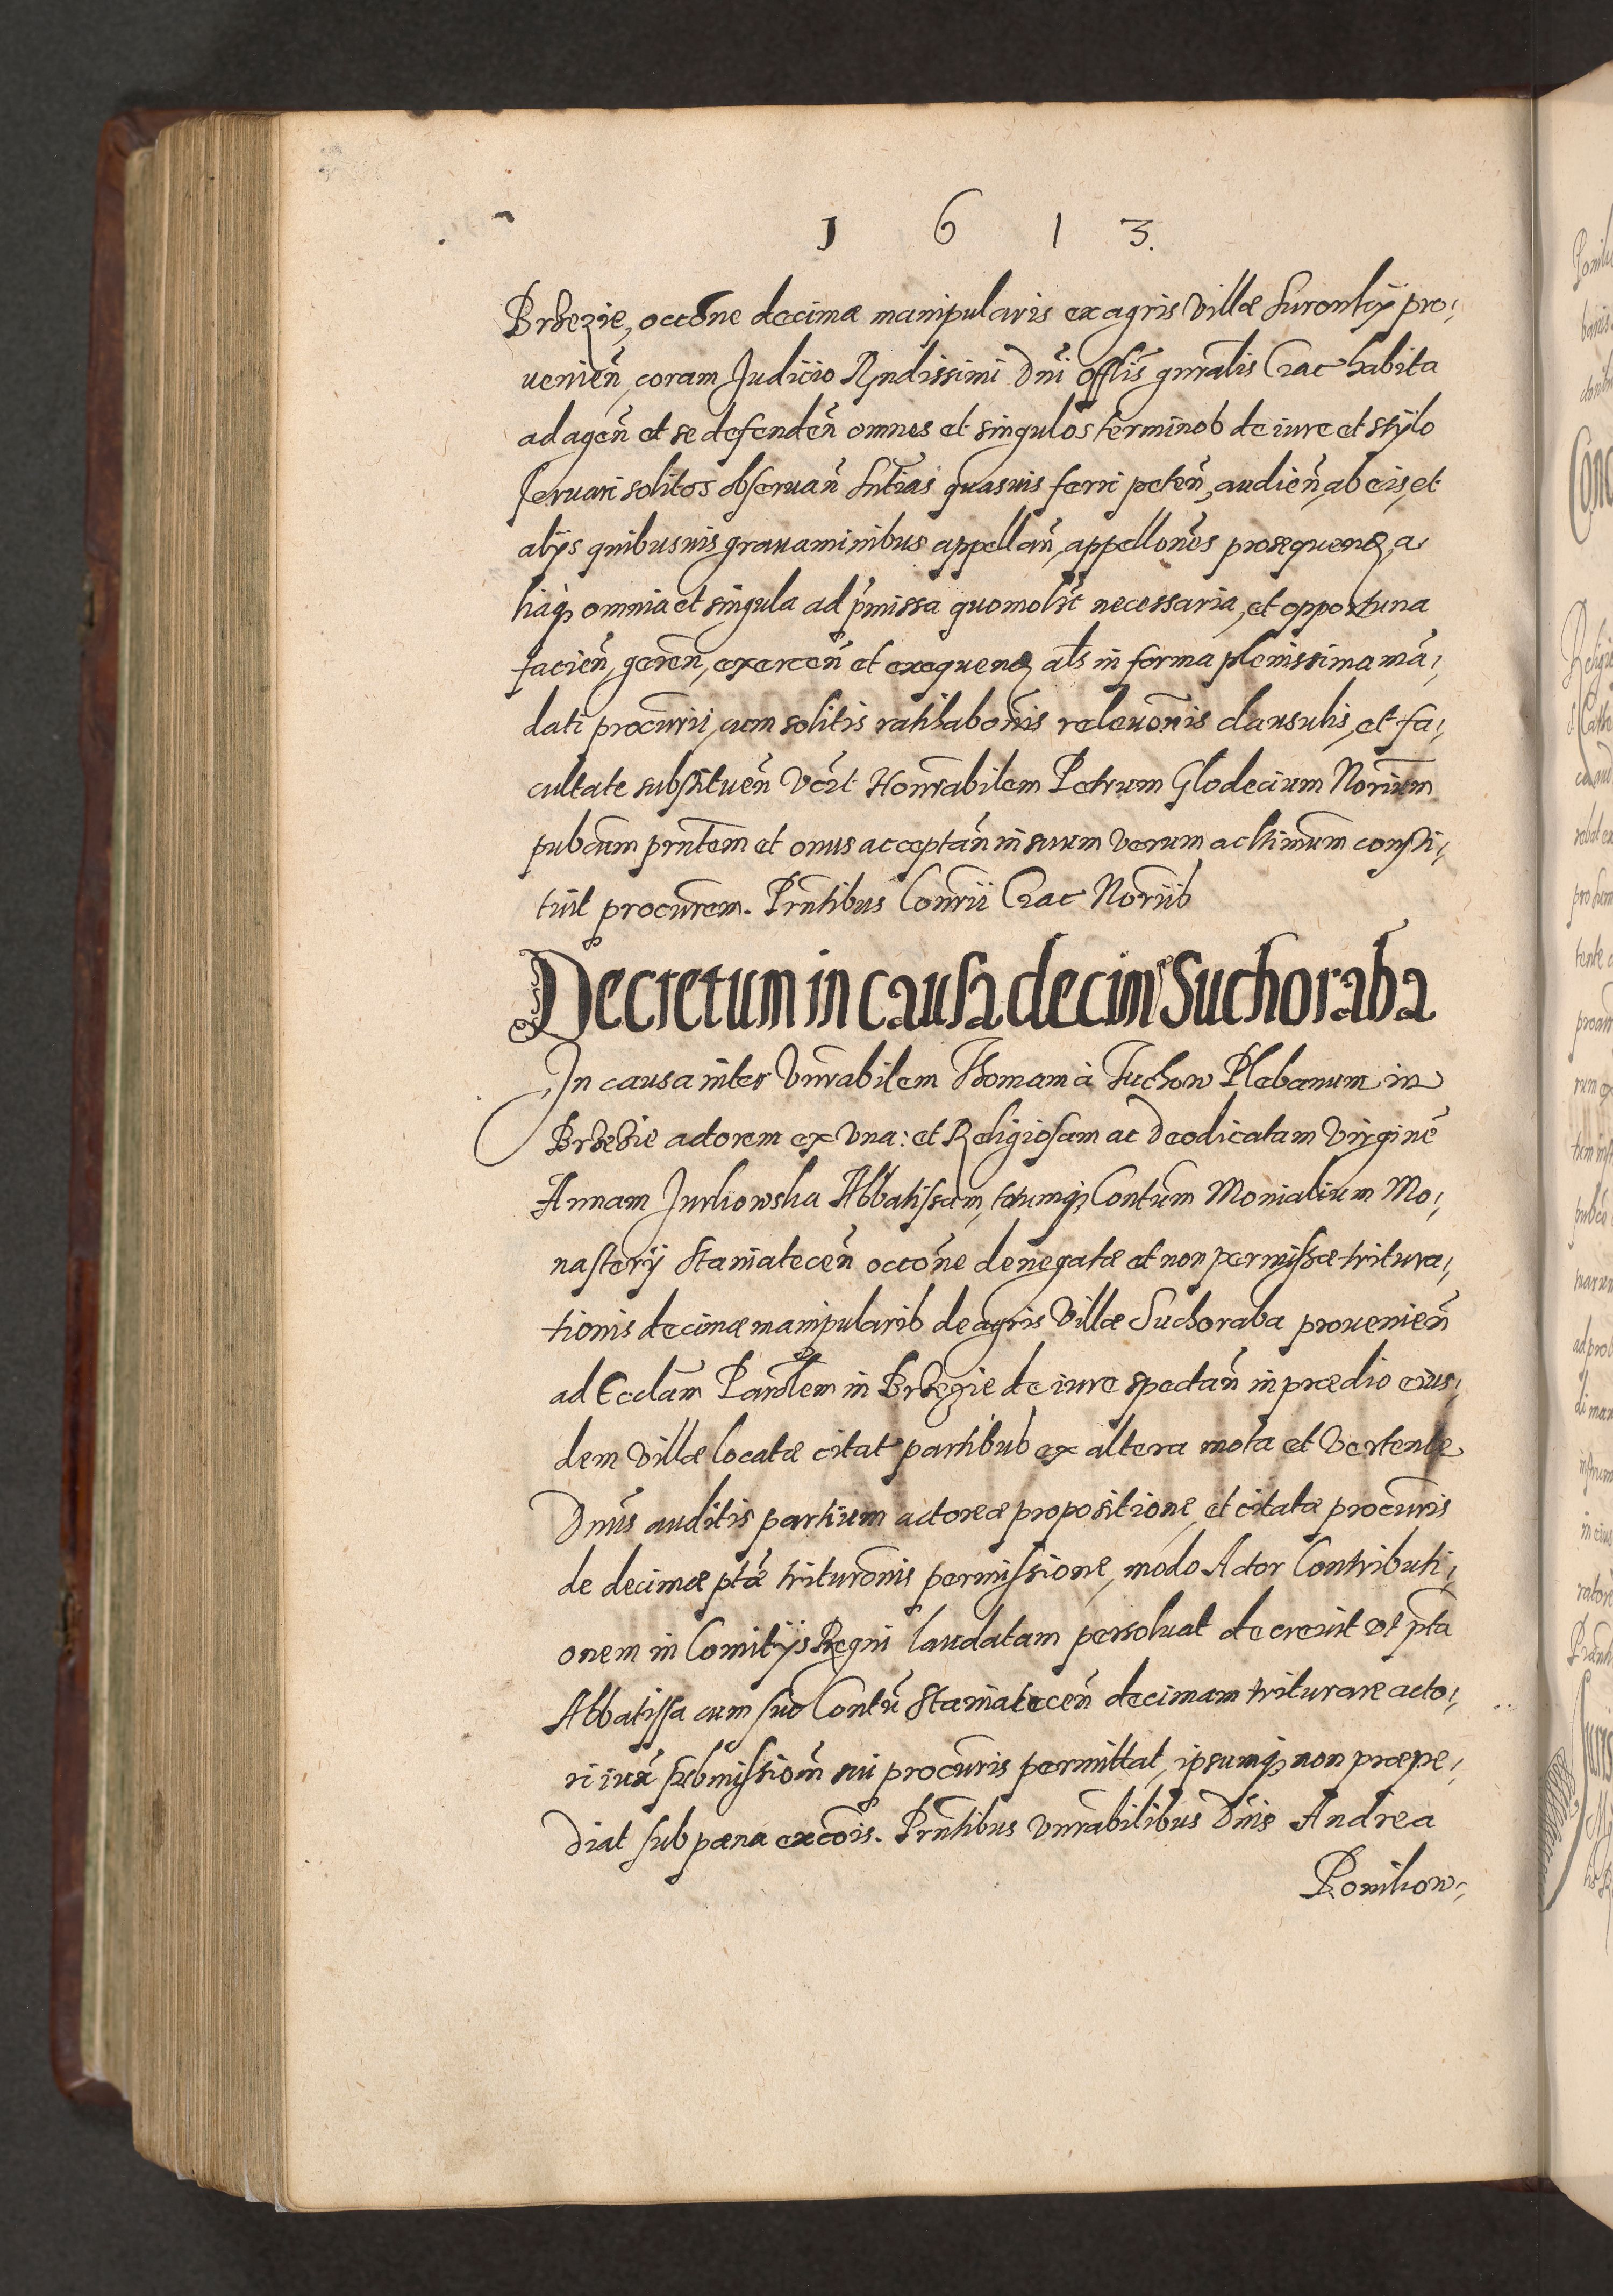 1 6 1 3.
Brzezie, occõne decimæ manipularis ex agris Villæ Surontij pro¡
uenieñ, coram Judicio Rndissimi Dñi Offlis gnralis Crac habita
ad ageñ et se defendeñ omnes et singulos terminos de iure et stÿlo
seruari solitos obseruañ Sñtias quasuis ferri peteñ, audieñ, ab eis, et
alÿs quibusuis grauaminibus appellañ, appellones prosequeñ, a
liaq omnia et singula ad p̃missa quomolꝫt necessaria, et opportuna
facieñ, gereñ, exerceñ et exequeñ als in forma plenissima mã¡
dati procurii, cum solitis ratihabonis releuonis clausulis, et fa¡
cultate substitueñ Vč̃t Honrabilem Petrum Glodecium Norium
pubcum prñtem et onus acceptañ in suum verum ac ltimum consti¡
tuit procurem. Prntibus Conrii Crac Noriib
Decretum in causa decim̃ Suchoraba
In causa inter Vnrabilem Thomam à Tuchow Plebanum in
Brzezie actorem ex Vna: et Religiosam ac Deodicatam Virginẽ
Annam Jurkowska Abbatissam, totumq Contum Monialium Mo¡
nasterÿ Staniateceñ occõne denegatæ et non permissæ tritura¡
tionis decimæ manipularis de agris Villæ Suchoraba prouenieñ
ad Ecclam Parolem in Brzezie de iure spectañ in prædio eius¡
dem Villæ locatæ citat partibus ex altera mota et Vertente
Dnus auditis partium actoreæ propositione, et citatæ procuris
de decimæ ptæ trituronis permissione, modo Actor Contributi¡
onem in Comitijs Regni laudatam persoluat decreuit vt pta
Abbatissa cum suo Contu Staniateceñ decimam triturare acto¡
ri iuxã submissioñ sui procuris permittat, ipsumq non præpe¡
diat sub pæna excois. Prntibus Vnrabilibus Dnis Andrea
Ronikow¡